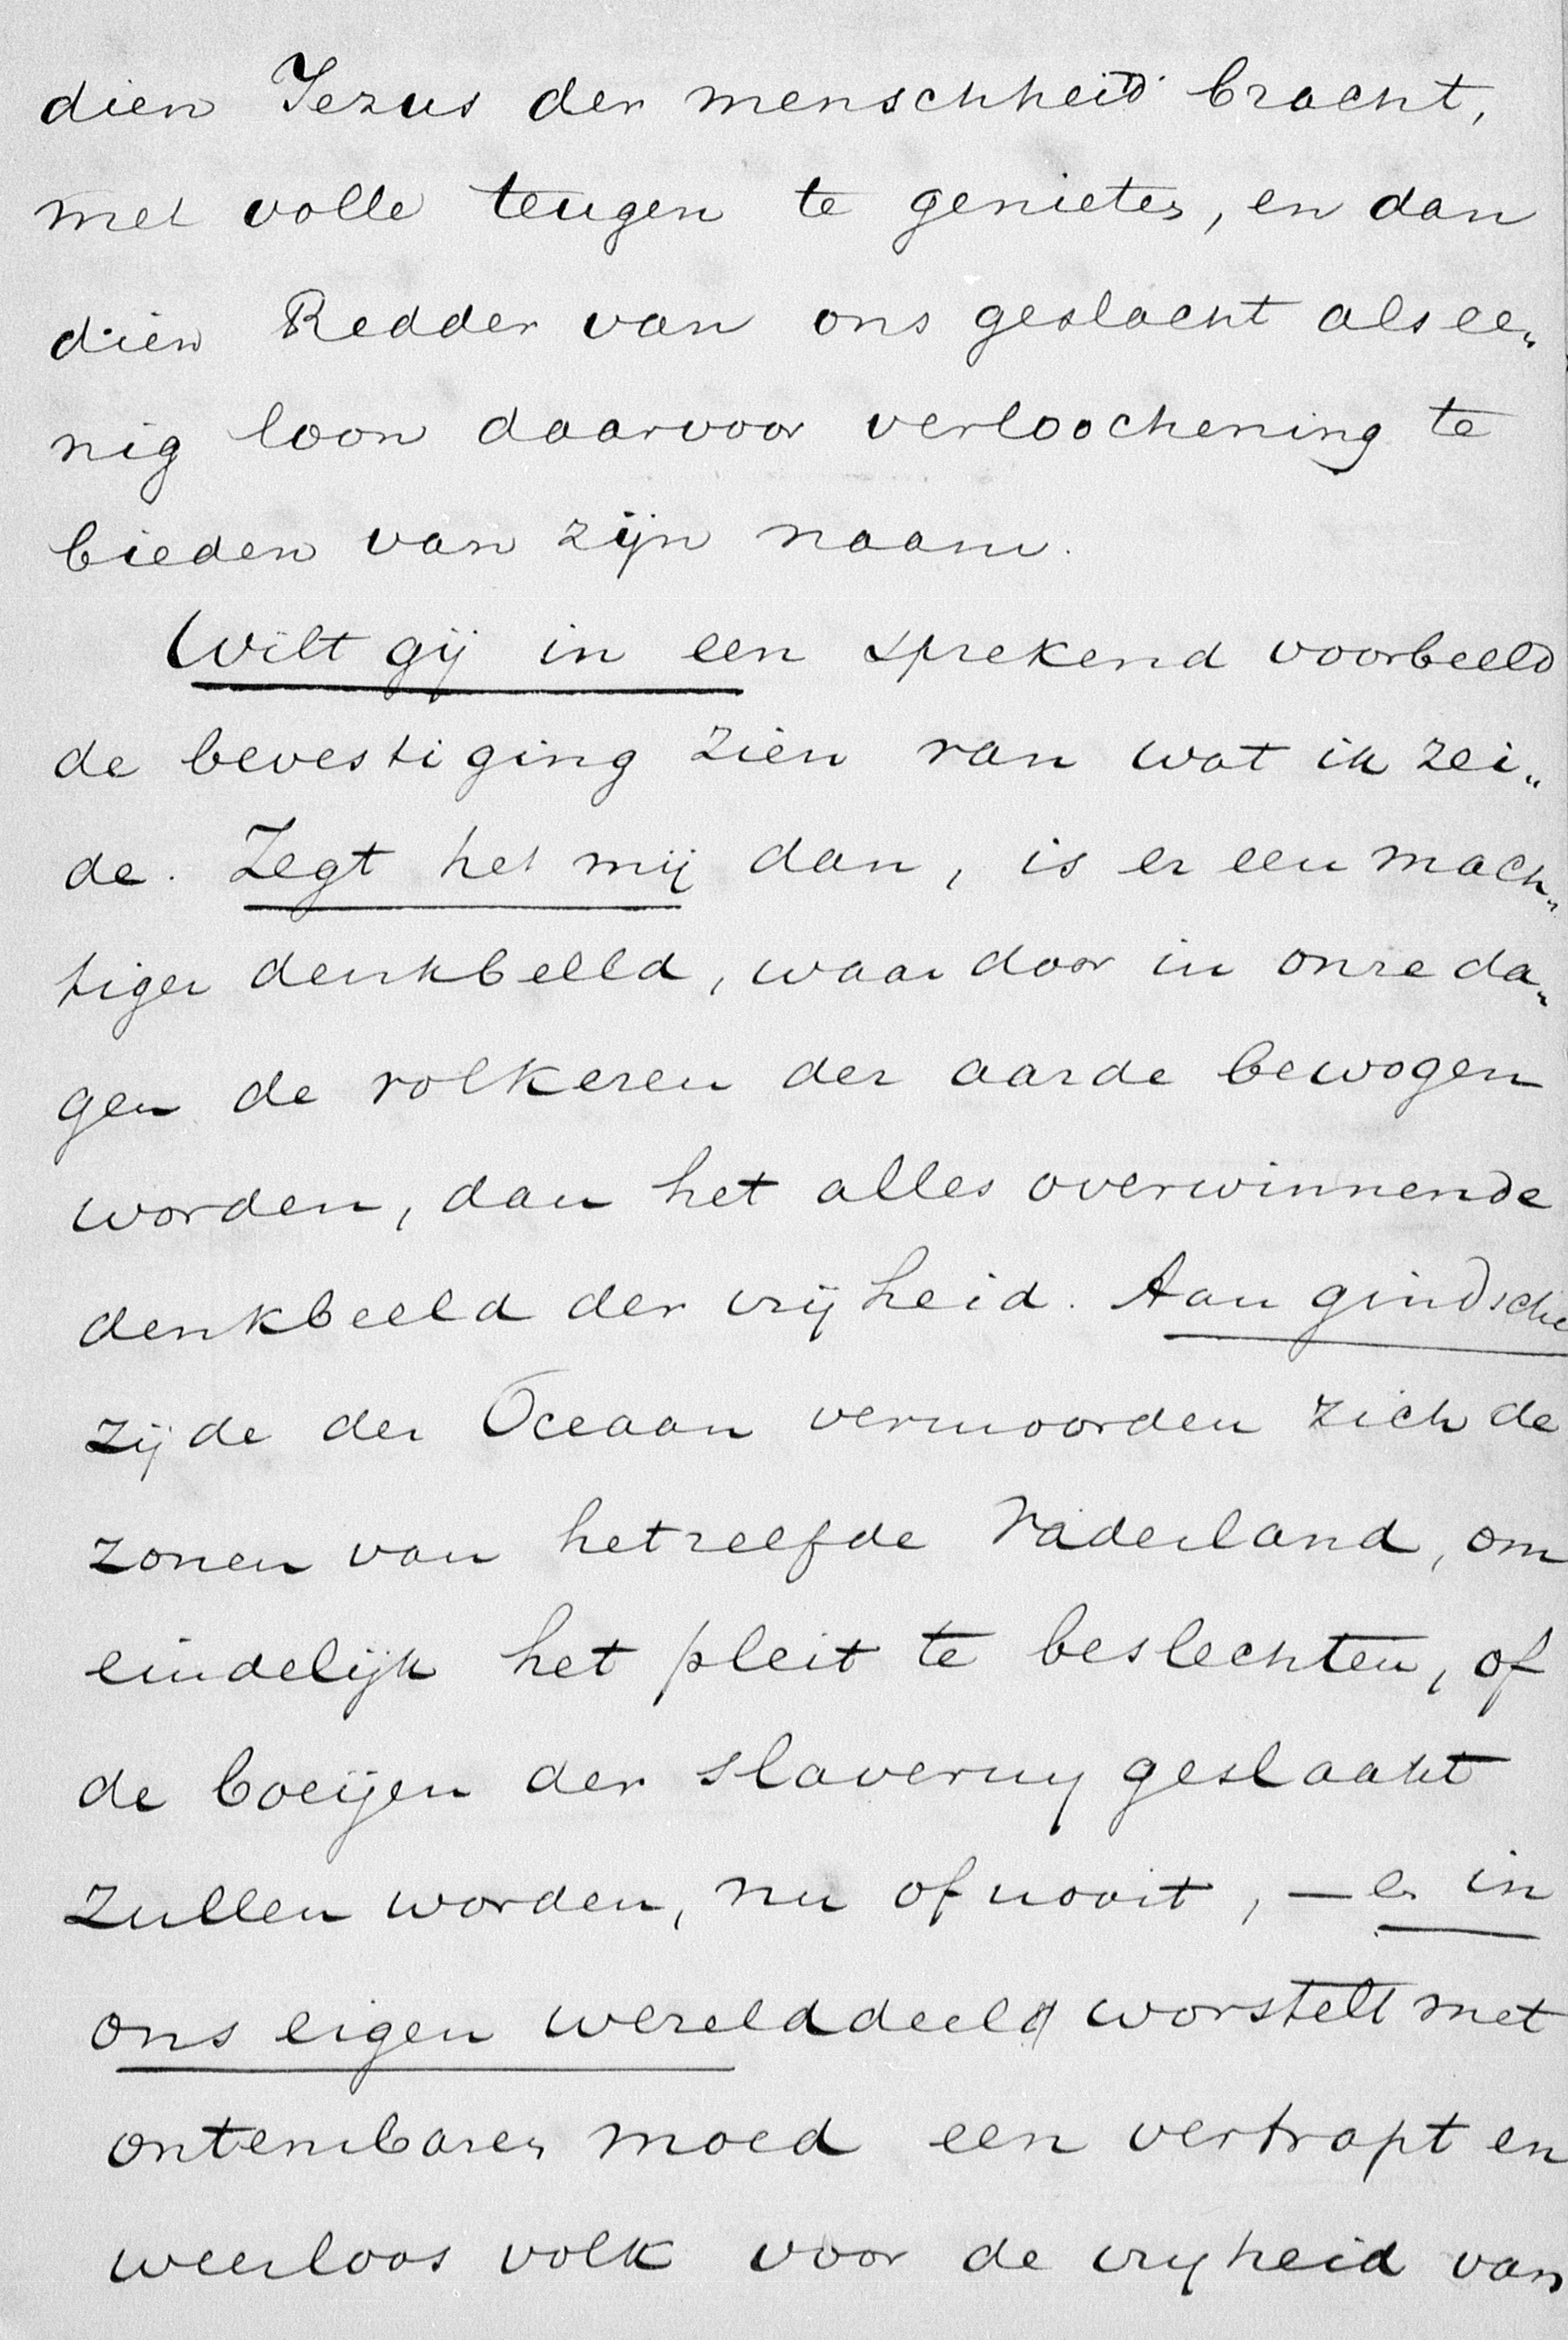 dien Jezus der menschheid bracht,
met volle teugen te genieten, en dan
dien Redder van ons geslacht als ee„
nig loon daarvoor verloochening te
bieden van zijn naam.
Wilt gij in een sprekend voorbeeld
de bevestiging zien van wat ik zei„
de. Zegt het mij dan, is er een mach„
tiger denkbeeld, waardoor in onze da„
gen de volkeren der aarde bewogen
worden, dan het alles overwinnende
denkbeeld der vrijheid. Aan gindsche
zijde der Oceaan vermoorden zich de
zonen van hetzelfde Vaderland, om
eindelijk het pleit te beslechten, of
de boeijen der slavernij geslaakt
zullen worden, nu of nooit, — en in
ons eigen werelddeel worstelt met
ontembaren moed een vertrapt en
weerloos volk voor de vrijheid van